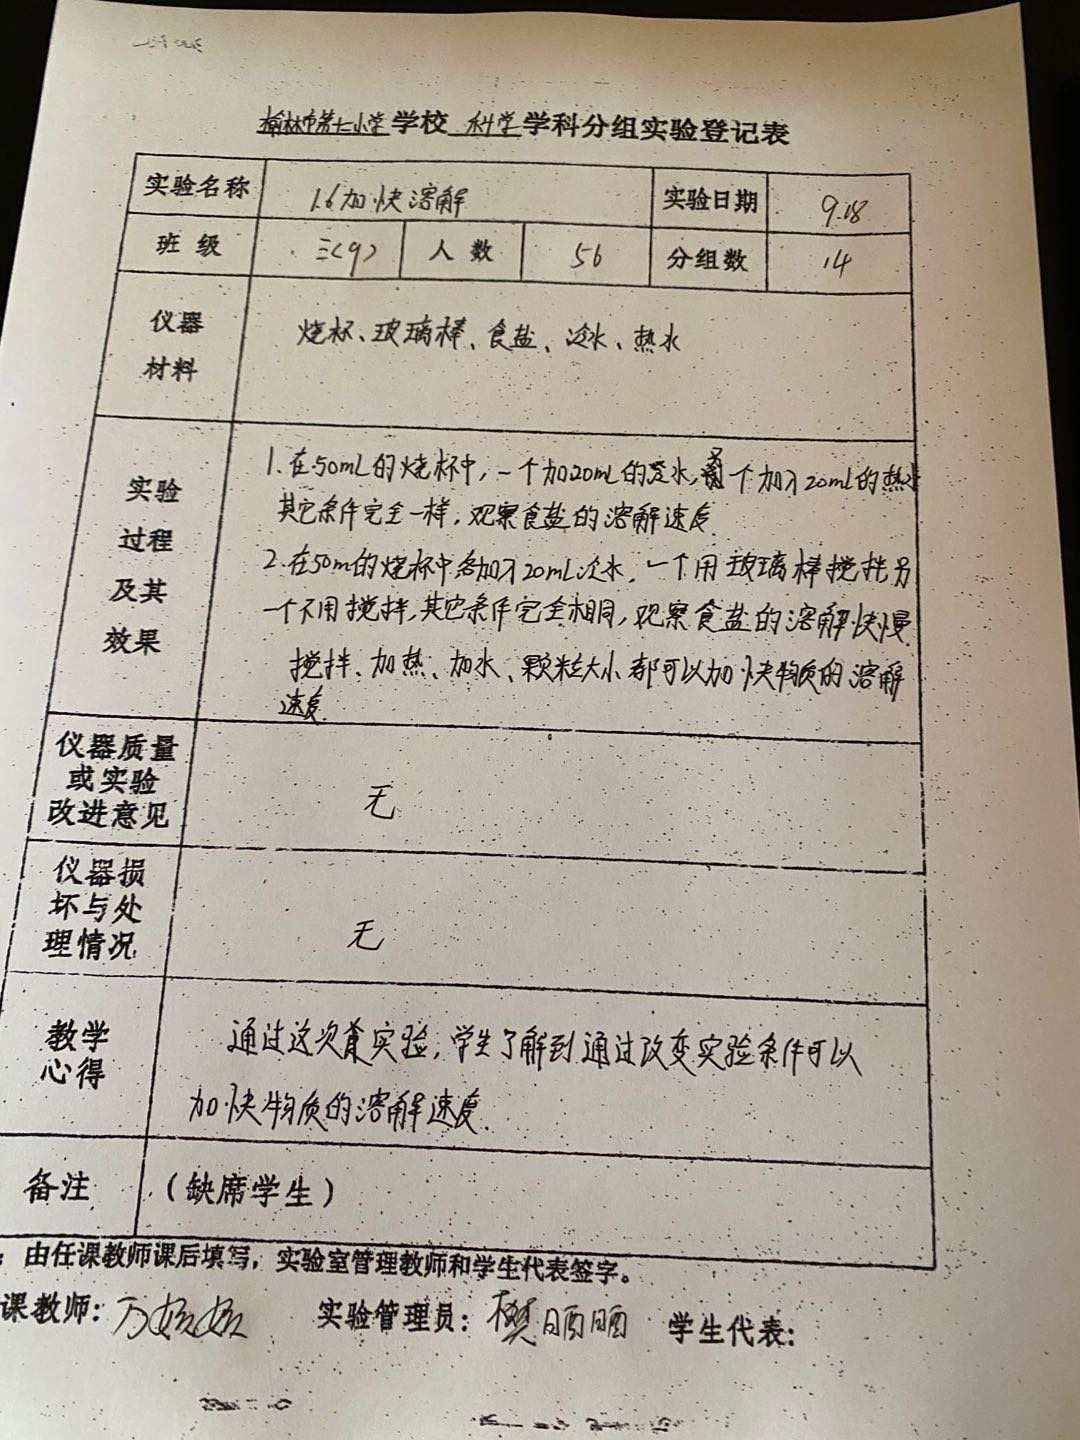 榆林市第七小学学校 科学学科分组实验登记表
实验名称 1.6加快溶解 实验日期 9.18
班级 三(9) 人数 56 分组数 14
仪器
材料
烧杯、玻璃棒、食盐、冷水、热水
实验
过程
及其
效果
1.在50mL的烧杯中,一个加20mL的冷水,另一个加入20mL的热水
其它条件完全一样,观察食盐的溶解速度
2.在50m的烧杯中各加入20mL冷水,一个用玻璃棒搅拌另
一个不用搅拌,其它条件完全相同,观察食盐的溶解快慢
搅拌、加热、加水、颗粒大小都可以加快物质的溶解
速度
仪器质量
或实验
改进意见
无
仪器损
坏与处
理情况
无
教学
心得
通过这次实验,学生了解到通过改变实验条件可以
加快物质的溶解速度.
备注 (缺席学生)
:由任课教师课后填写,实验室管理教师和学生代表签字。
课教师: 实验管理员: 樊 学生代表: